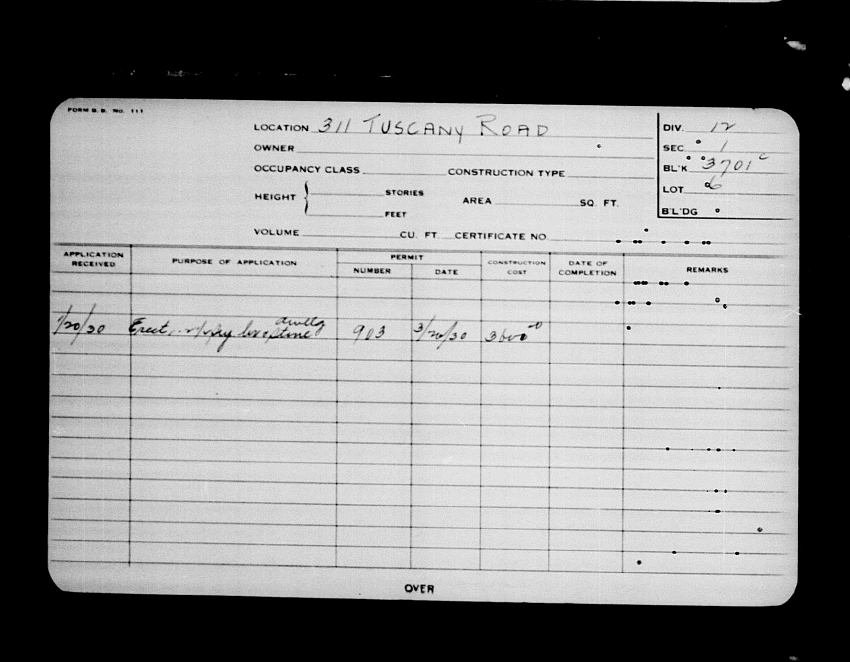 FORM B.B. No. 111
LOCATION 311 TUSCANY ROAD
DIV. 12
OWNER
SEC 1
OCCUPANCY CLASS CONSTRUCTION TYPE
BL'K 3701 c
HEIGHT STORIES AREA SQ. FT.
LOT 6
FEET
B'L'DG
VOLUME CU. FT. CERTIFICATE NO.
APPLICATION RECEIVED PURPOSE OF APPLICATION PERMIT NUMBER DATE CONSTRUCTION COST DATE OF COMPLETION REMARKS
/20/30 Erect dwellg 903 3/20/30
OVER